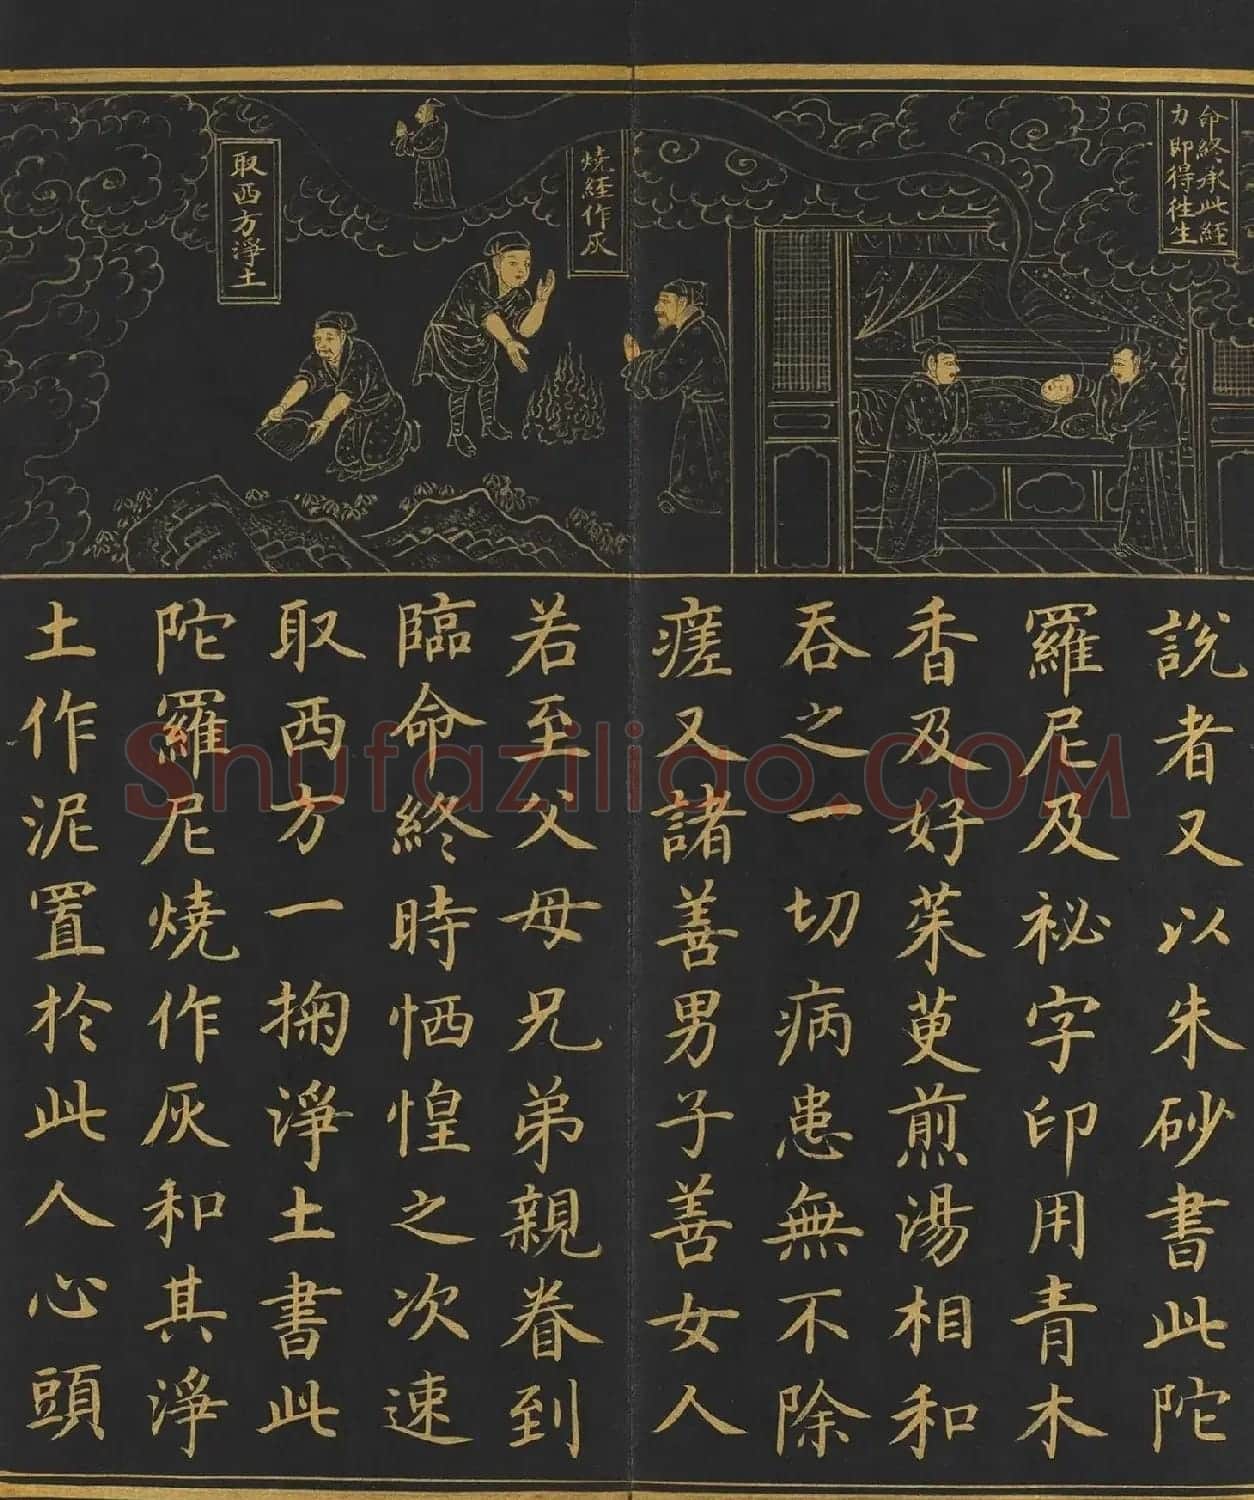 命終承此經
力即得往生
燒經作灰
取西方淨土
說者又以朱砂書此陀
羅尼及祕字印用青木
香及好茱萸煎湯相和
吞之一切病患無不除
瘥又諸善男子善女人
若至父母兄弟親眷到
臨命終時恓惶之次速
取西方一掬淨土書此
陀羅尼燒作灰和其淨
土作泥置於此人心頭
Shufaziliao.COM